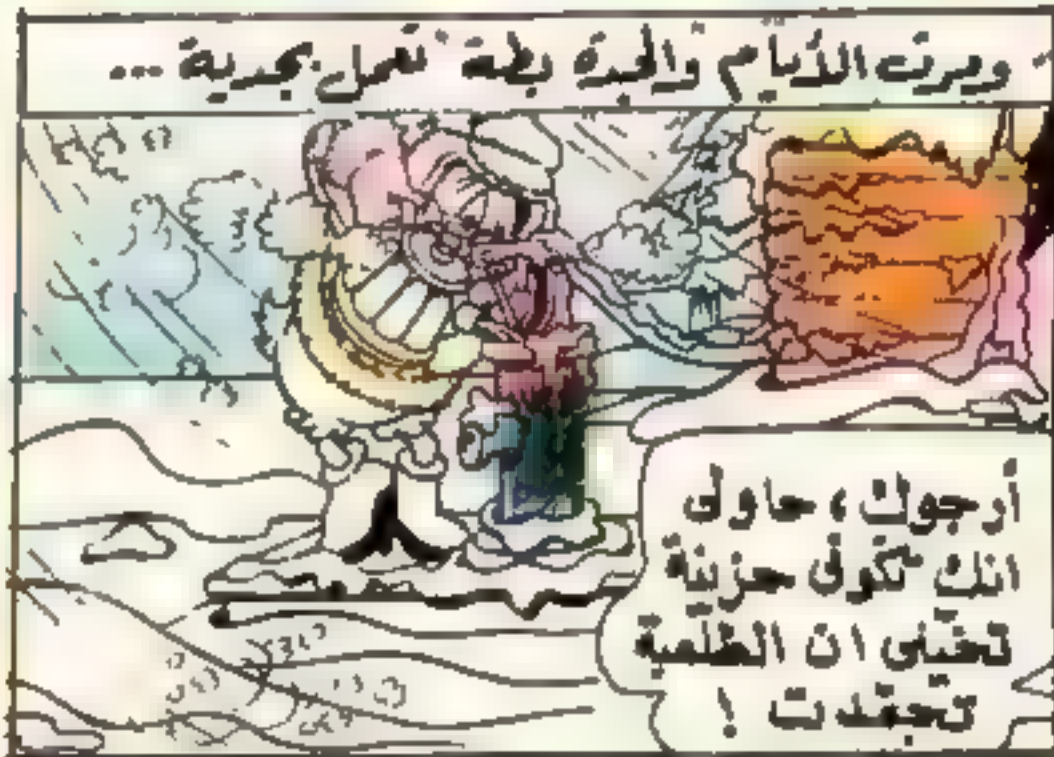 ومرت الأيام والجدة بطة تعمل بجدية ...
أرجوك ، حاولى
انك تكونى حزينة
تخيلى ان الطلمبة
تجمدت !